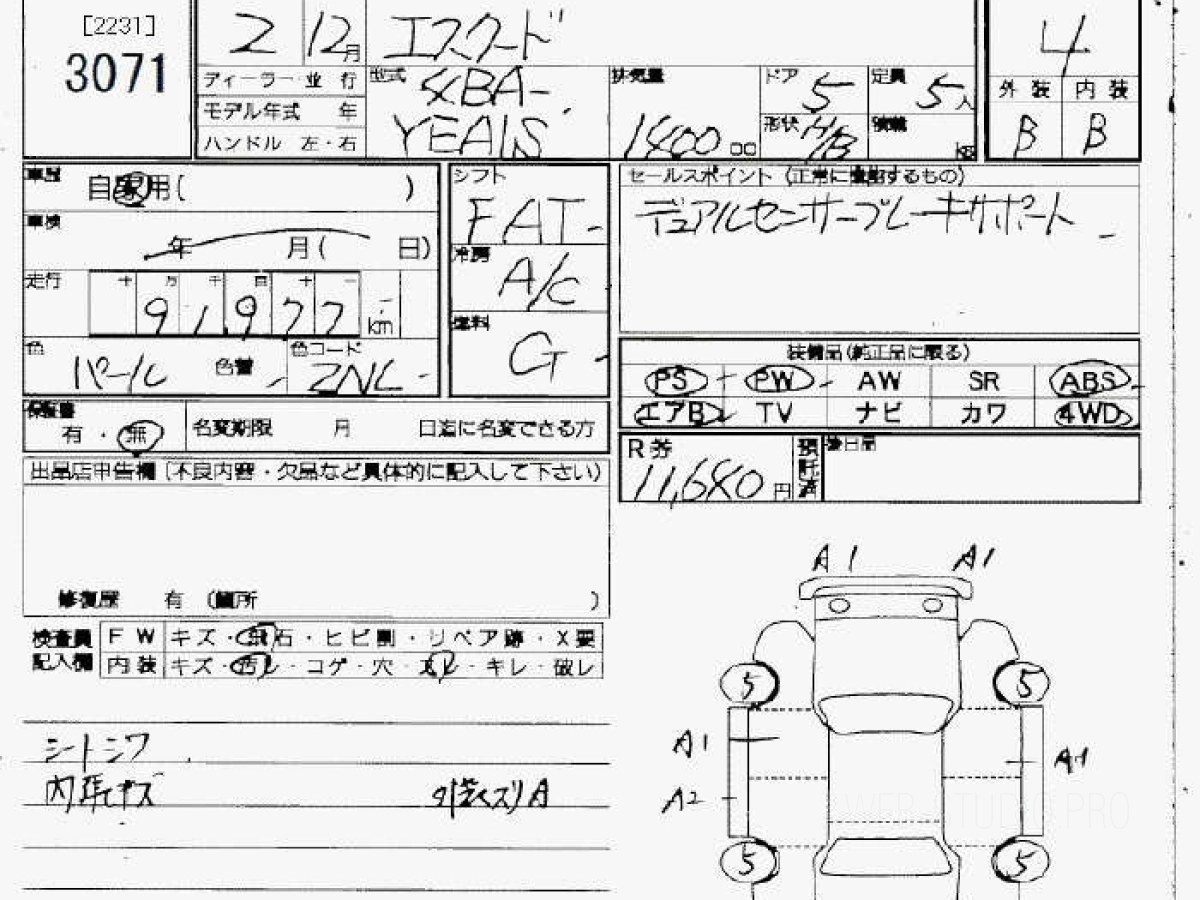 [2231]
3071
2 12月 エスクード
ディーラー・並 行
型式 4BA-
モデル年式 年
YEA1S
ハンドル 左・右
排気量 1400 cc
ドア 5
定員 5人
形状 H/B
積載 kg
4
外 装 内 装
B B
車歴 自家用( )
車検 年 月( 日)
走行 十 万 千 百 十 一
91,977 km
色 パール 色替
色コード ZNL
シフト
FAT
冷房
A/C
燃料
G
セールスポイント (正常に機能するもの)
デュアルセンサーブレーキサポート
装備品(純正品に限る)
PS PW AW SR ABS
エアB TV ナビ カワ 4WD
保証書
有・無 名変期限 月 日迄に名変できる方
R券 11,640円 預託済 後日品
出品店申告欄(不良内容・欠品など具体的に記入して下さい)
修復歴 有 (箇所 )
検査員記入欄
FW キズ・飛石・ヒビ割・リペア跡・X要
内装 キズ・汚レ・コゲ・穴・スレ・キレ・破レ
シートシワ
内張キズ 外装スリA
A1 A1
5 5
A1 A1
A2
5 5
WEB STUDIO PRO